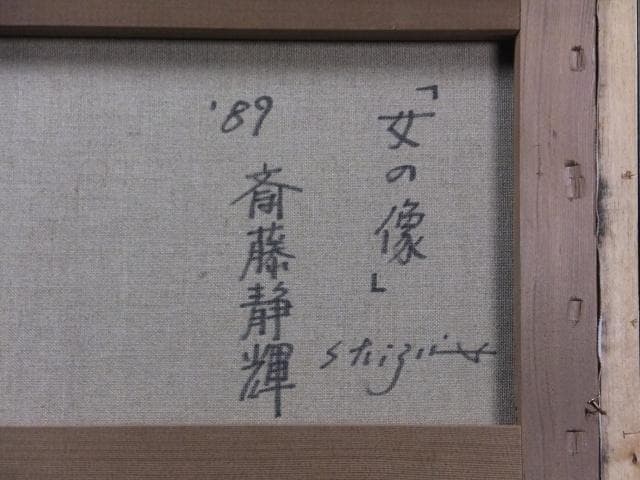 「女の像」
'89
斎藤静輝